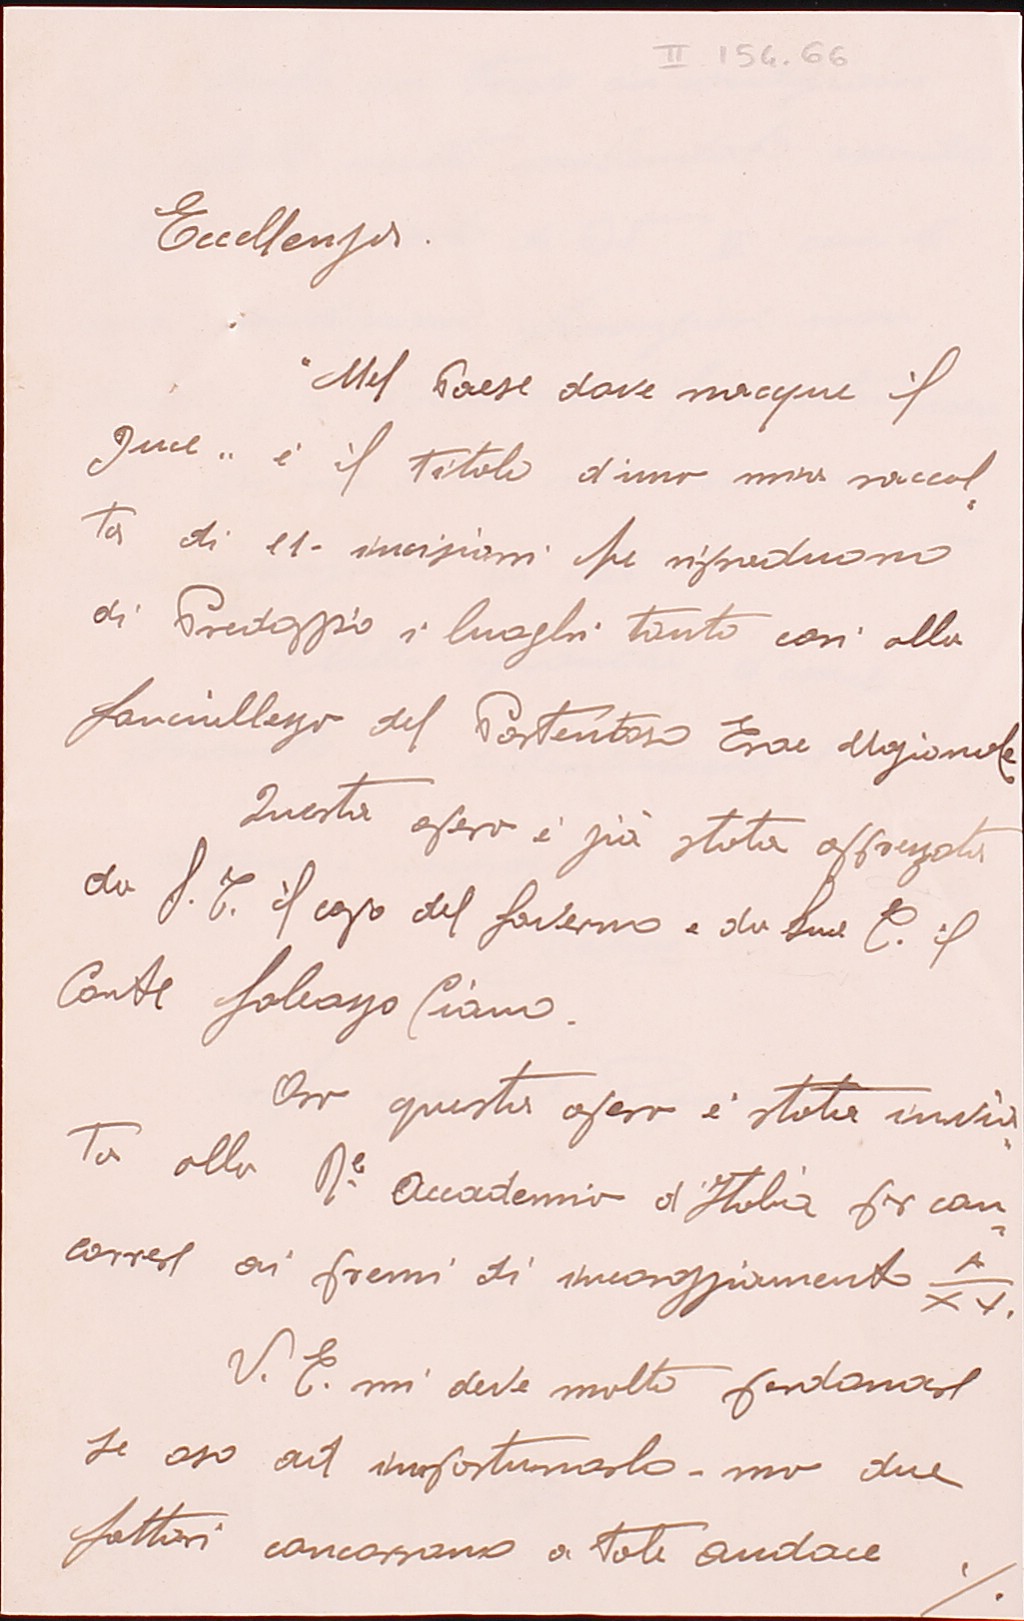 II 154.66
Eccellenza.
"Nel Paese dove nacque il
Duce" è il titolo d'una mia raccol=
ta di 21- incisioni che riproducono
di Predappio i luoghi tanto cari alla
fanciullezza del Portentoso Eroe Nazionale
Questa opera è già stata apprezzata
da S. E. il capo del Governo e da Sua E. il
Conte Galeazzo Ciano.
Ora questa opera è stata invia=
ta alla Rle Accademia d'Italia per con=
correre ai premi di incoraggiamento A
XV.
V. E. mi deve molto perdonare
se oso ad importunarla - ma due
fattori concorrono a tale audace
./.